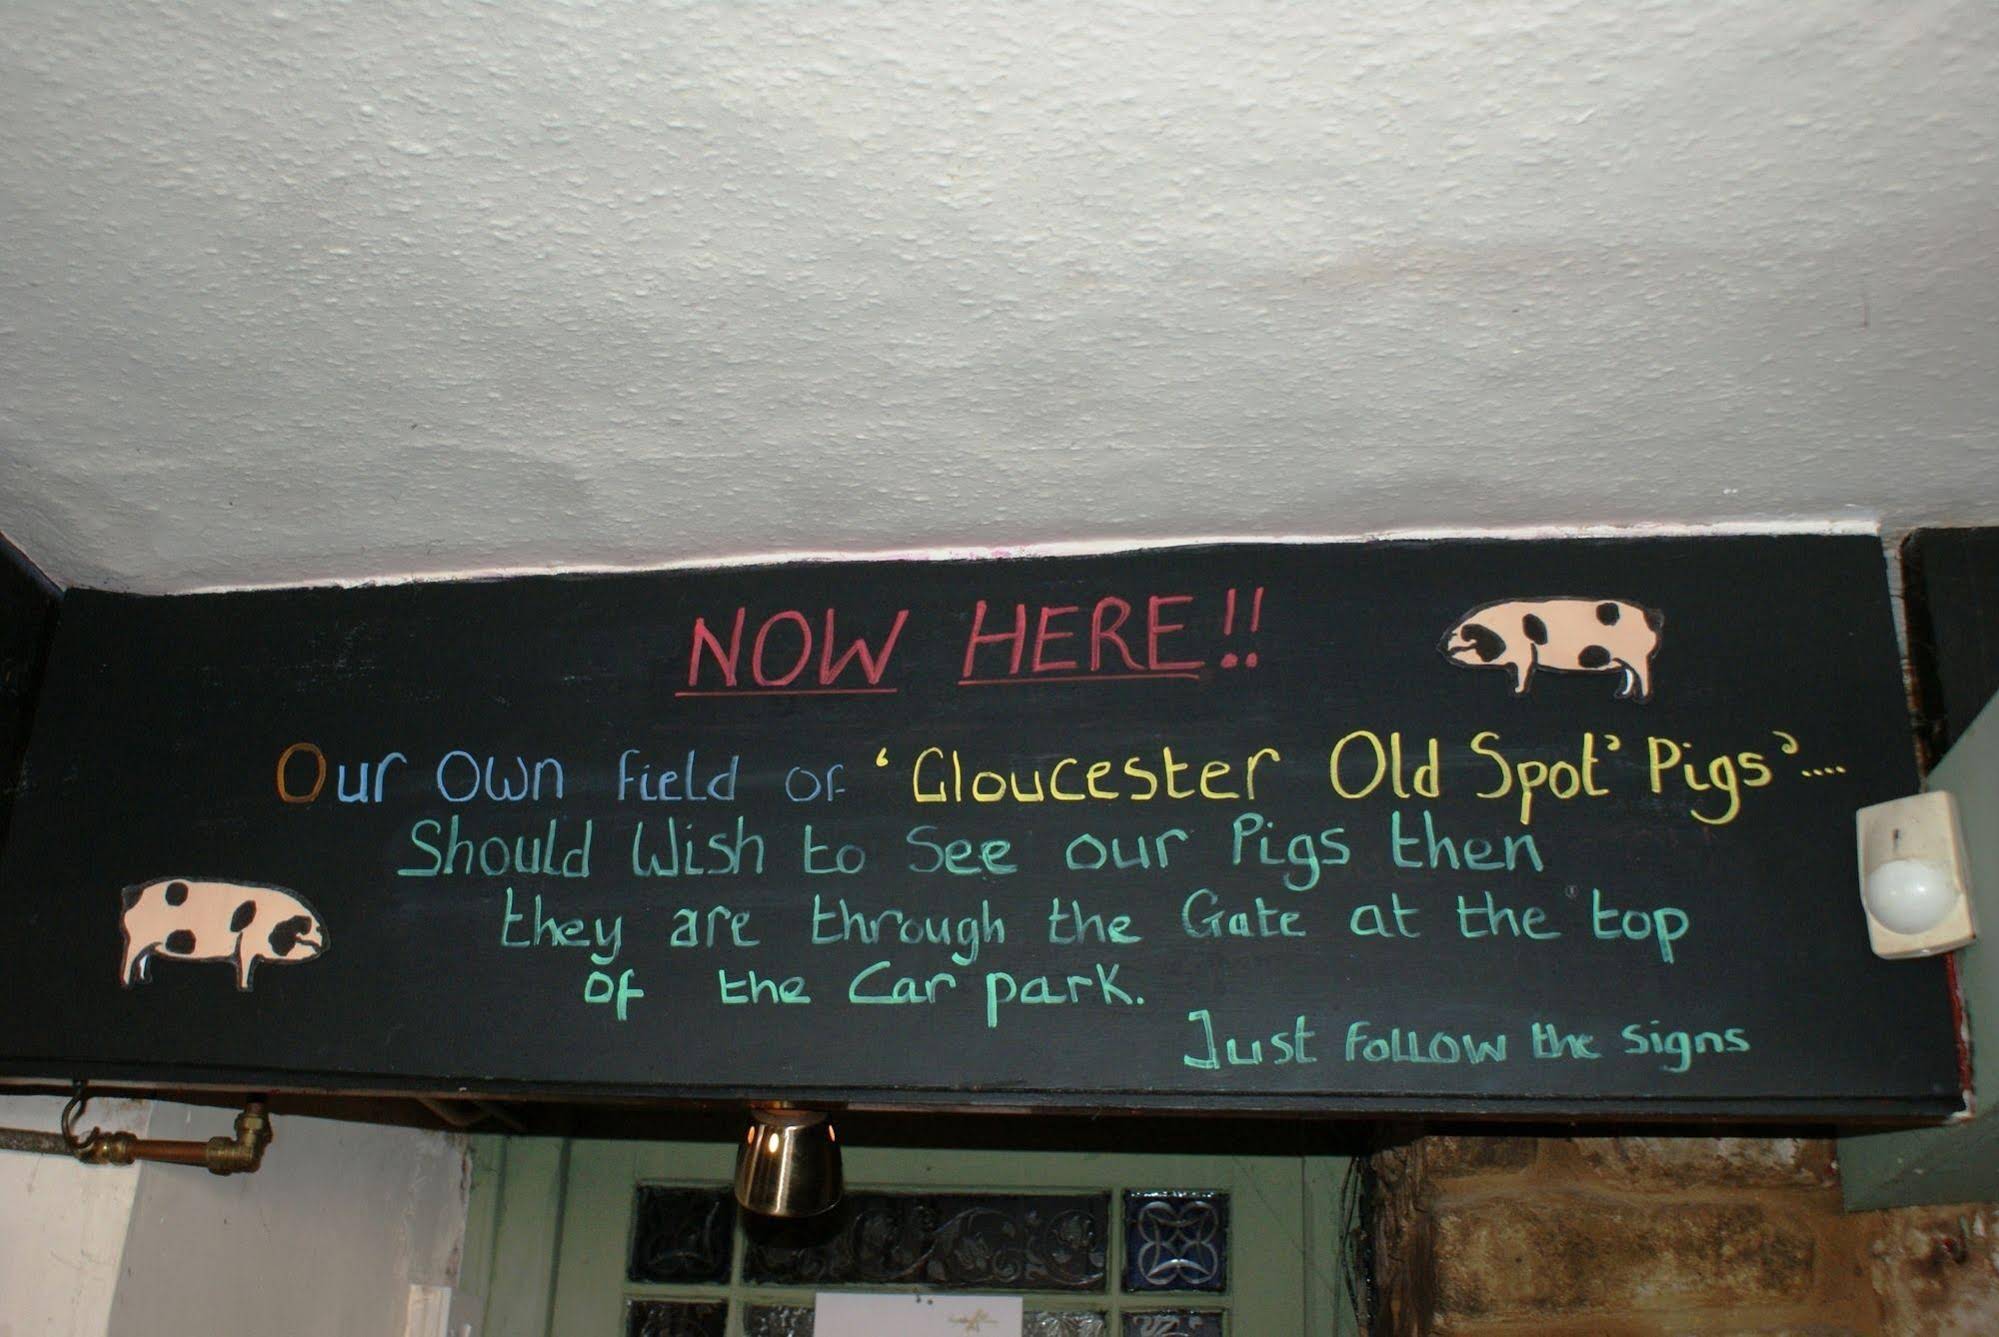 NOW HERE!!
Our Own Field of 'Gloucester Old Spot' Pigs'....
Should Wish to See our Pigs then
they are through the Gate at the top
of the Car park.
Just Follow the signs